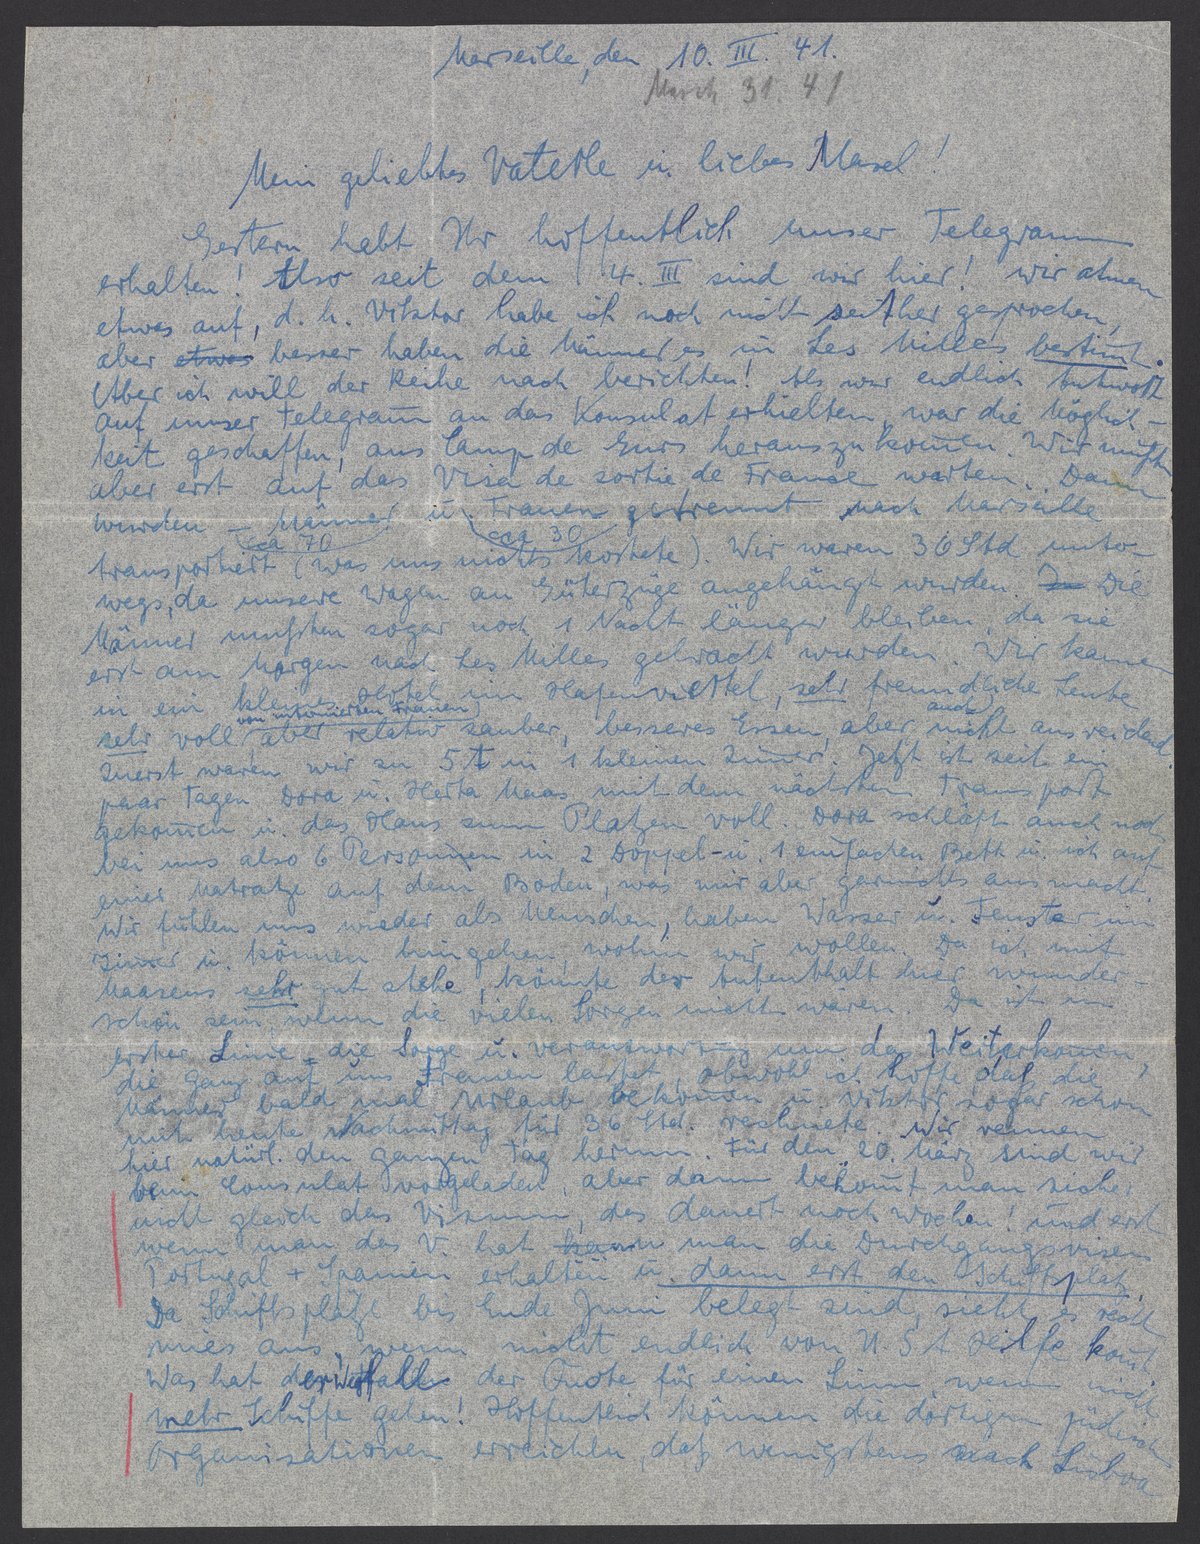 Marseille, den 10. III. 41.
March 31. 41
Mein geliebtes Vaterle u. liebes Masel!
Gestern habt Ihr hoffentlich unser Telegramm
erhalten! Also seit dem 4. III sind wir hier! Wir atmen
etwas auf, d. h. Viktor habe ich noch nicht seither gesprochen,
aber etwas besser haben die Männer es in Les Milles bestimt.
Aber ich will der Reihe nach berichten! Als wir endlich Antwort
auf unser Telegram̅ an das Konsulat erhielten, war die Möglich-
keit geschaffen, aus Camp de Gurs herauszukom̅en. Wir mußten
aber erst auf das Visa de sortie de France warten. Dann
wurden – Männer u. Frauen getrennt nach Marseille
ca 70 cca 30
transportiert (was uns nichts kostete). Wir waren 36 Std. unter-
wegs, da unsere Wagen an Güterzüge angehängt wurden. Die
Männer mußten sogar noch 1 Nacht länger bleiben, da sie
erst am Morgen nach Les Milles gebracht wurden. Wir kamen
in ein kleines Hotel im Hafenviertel, sehr freundliche Leute
von internierten Frauen auch
sehr voll, aber relativ sauber, besseres Essen, aber nicht ausreichend.
Zuerst waren wir zu 5t in 1 kleinen Zim̅er. Jetzt ist seit ein
paar Tagen Dora u. Herta Maas mit dem nächsten Transport
gekom̅en u. das Haus zum Platzen voll. Dora schläft auch noch
bei uns also 6 Personen in 2 Doppel- u. 1 einfachen Bett u. ich auf
einer Matratze auf dem Boden, was mir aber garnichts ausmacht.
Wir fühlen uns wieder als Menschen, haben Wasser u. Fenster im
Zimmer u. können hingehen, wohin wir wollen. Da ich mit
Maasens sehr gut stehe, könnte der Aufenthalt hier wunder-
schön sein, wenn die vielen Sorgen nicht wären. Da ist in
erster Linie die Sorge u. Verantwortung um das Weiterkom̅en,
die ganz auf uns Frauen lastet, obwohl ich hoffe daß die
Männer bald mal Urlaub bekom̅en u. Viktor sogar schon
mit heute Nachmittag für 36 Std. rechnete. Wir rennen
hier natürl. den ganzen Tag herum. Für den 20. März sind wir
beim Consulat vorgeladen, aber dann bekom̅t man sicher
nicht gleich das Visum, das dauert noch Wochen! Und erst
wenn man das V. hat kann man die Durchgangsvisen
Portugal + Spanien erhalten u. dann erst den Schiffsplatz.
Da Schiffsplätze bis Ende Juni belegt sind, sieht es recht
mies aus, wenn nicht endlich von U.S.A Hilfe kom̅t
Was hat der Wegfall der Quote für einen Sinn, wenn nicht
mehr Schiffe gehen! Hoffentlich können die dortigen jüdischen
Organisationen erreichen, daß wenigstens nach Lisboa